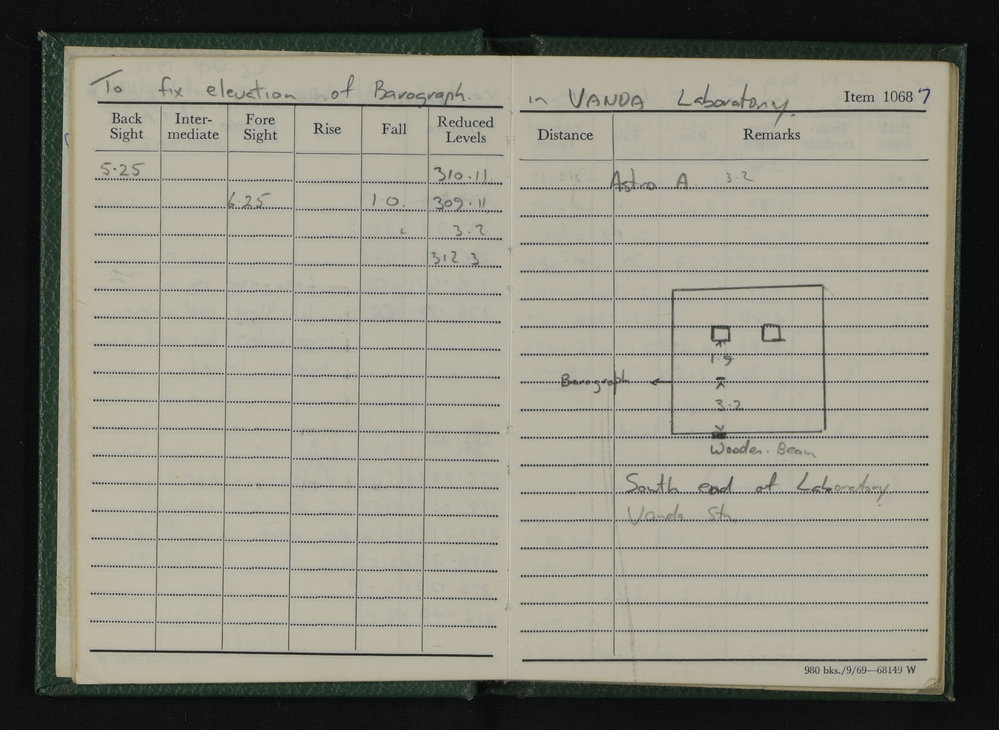 To fix elevation of Barograph. in VANDA Laboratory. Item 1068 7
Back Sight Inter-mediate Fore Sight Rise Fall Reduced Levels Distance Remarks
5.25 310.11 Astro A 3.2
6.25 1.0. 309.11
3.2
312.3
1.9
Barograph
3.2
Wooden Beam
South end of Laboratory
Vanda Stn
980 bks./9/69—68149 W